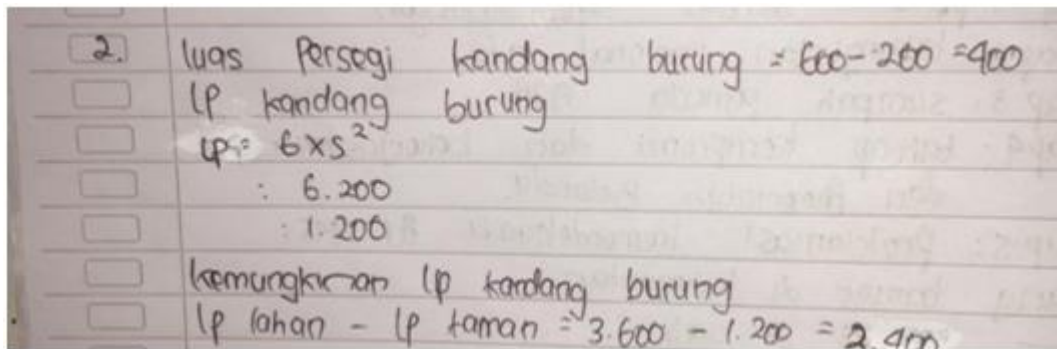 2. luas Persegi kandang burung = 600 - 200 = 400
lp kandang burung
lp = 6 x s²
: 6.200
: 1.200
kemungkinan lp kandang burung
lp lahan - lp taman = 3.600 - 1.200 = 2.400